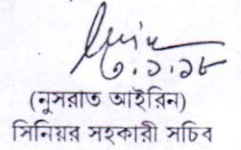 ৩.১.১৮
(নুসরাত আইরিন)
সিনিয়র সহকারী সচিব